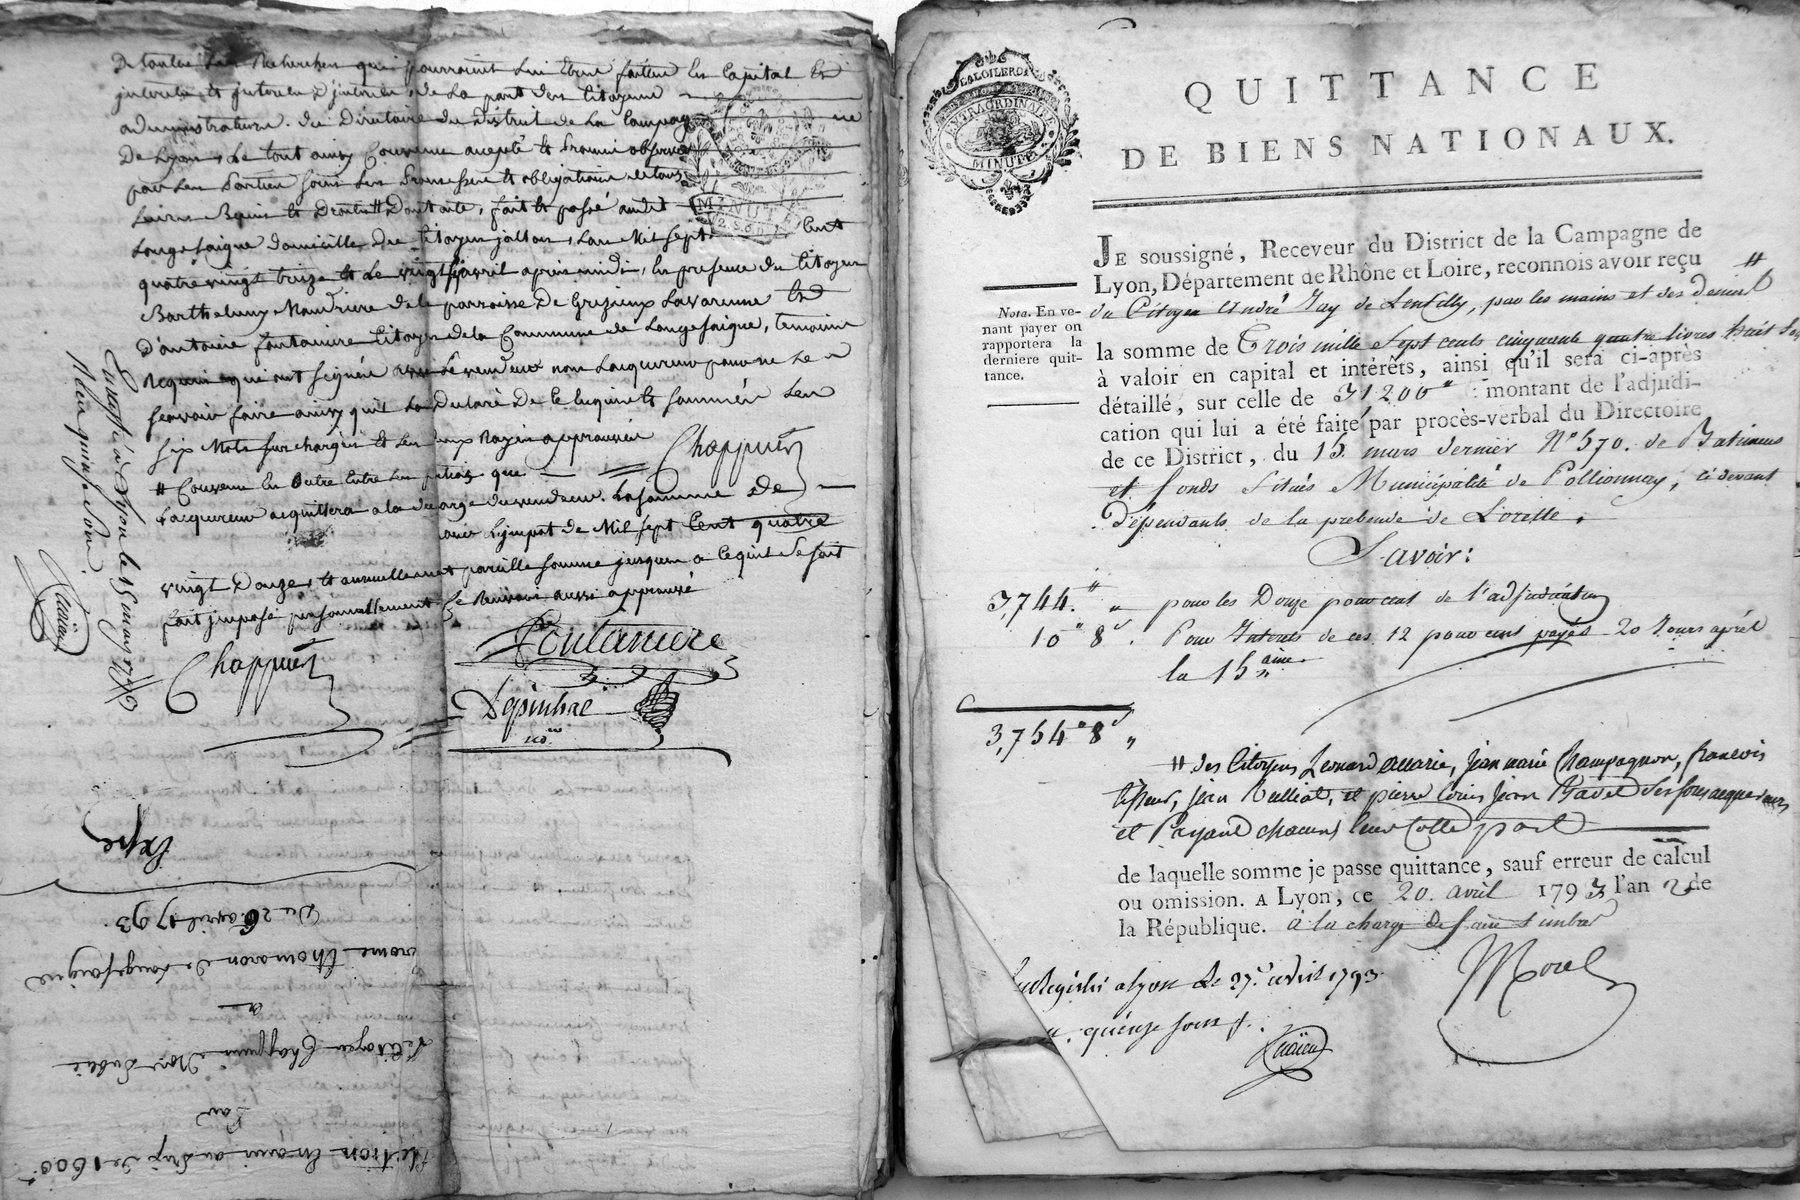 De toutes les Recherches qui pourroient lui Etre faittes en Capital Et
de La part des Citoyens
administrateurs du Directoire du district de La Campagne
De Lyon, Le tout ainsy Convenu accepté et Promis observer
par Les Parties sous Les Promesses et obligations de tous
Leurs Biens et Droits Dont acte, fait et passé audit
Longesaigne domicille du Citoyen jolton, L'an Mil Sept Cent
quatre vingt treize et Le vingt avril après midi, En presence du Citoyen
Barthelemy de la parroisse De Grezieux Lavarenne Et
D'antoine fontaniere Citoyen de la Commune de Longesaigne, temoins
Requis qui ont signés avec Le vendeur non Lacquereur pour ne Le
scavoir faire ainsy qu'il La Declaré De Ce Enquis et sommé Les
six Mots surchargés et Les Rayés approuvés
Chappuis
# Convenu En Outre Entre Les parties que
Lacquereur acquittera a la decharge du vendeur La somme de
L'impot de Mil sept Cent quatre
vingt Douze, et annuellement pareille somme jusques a Ce qu'il Se soit
fait imposé personnellement Le Renvoi aussi approuvé
Chappuis
Fontaniere
Lepinhac
nore
Enregistré a Lyon le 15 may 1793
Reçu quinze sous
Du 26 avril 1793.
thomaron de Longesaigne
a
Citoyen Chappuis
Par
au Prix de 1600#
CALOILERDI
EXTRAORDINAIRE
MINUTE
MINUTE
QUITTANCE
DE BIENS NATIONAUX.
Nota. En ve-
nant payer on
rapportera la
derniere quit-
tance.
JE soussigné, Receveur du District de la Campagne de
Lyon, Département de Rhône et Loire, reconnois avoir reçu
du Citoyen André Jay de Lentilly, par les mains et des deniers #
la somme de Trois mille Sept cents cinquante quatre livres huit sous
à valoir en capital et intérêts, ainsi qu'il sera ci-après
détaillé, sur celle de 31200# montant de l'adjudi-
cation qui lui a été faite par procès-verbal du Directoire
de ce District, du 15 mars dernier N° 570. de Batimens
et fonds Situés Municipalité de Pollionnay, ci devant
dépendants de la prebende de Lorette.
Savoir:
3,744.# " pour les Douze pour cent de l'adjudication
10 " 8 s. Pour Interets de ces 12 pour cent payés 20 Jours après
la 15aine
3,754 " 8 s "
# des Citoyens Leonard Marie, Jean marie Champagnon, francois
tisseur, jean Vulliat, et pierre Louis Jean Ravel Ses sous acquereurs
et Payant chacun leur Cotte part
de laquelle somme je passe quittance, sauf erreur de calcul
ou omission. A Lyon, ce 20. avril 1793 l'an 2 de
la République. à la charge de faire
Morel
Enregistré a Lyon Le 27. avril 1793
quinze sous